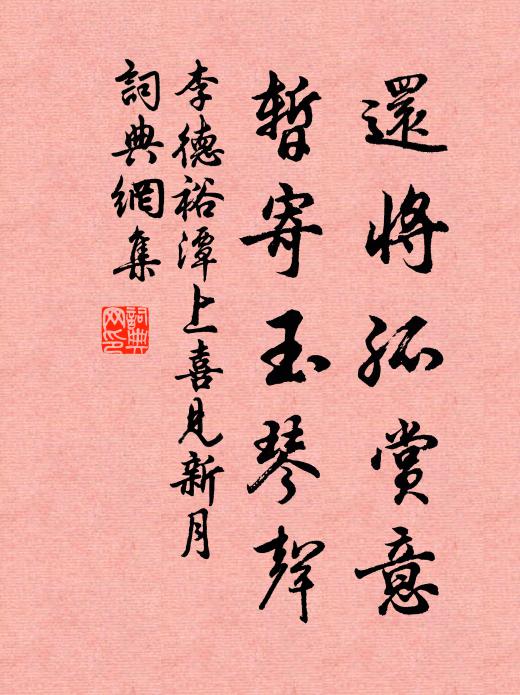 還將孤賞意
暫寄玉琴聲
李德裕潭上喜見新月
詞典網集
詞典网印